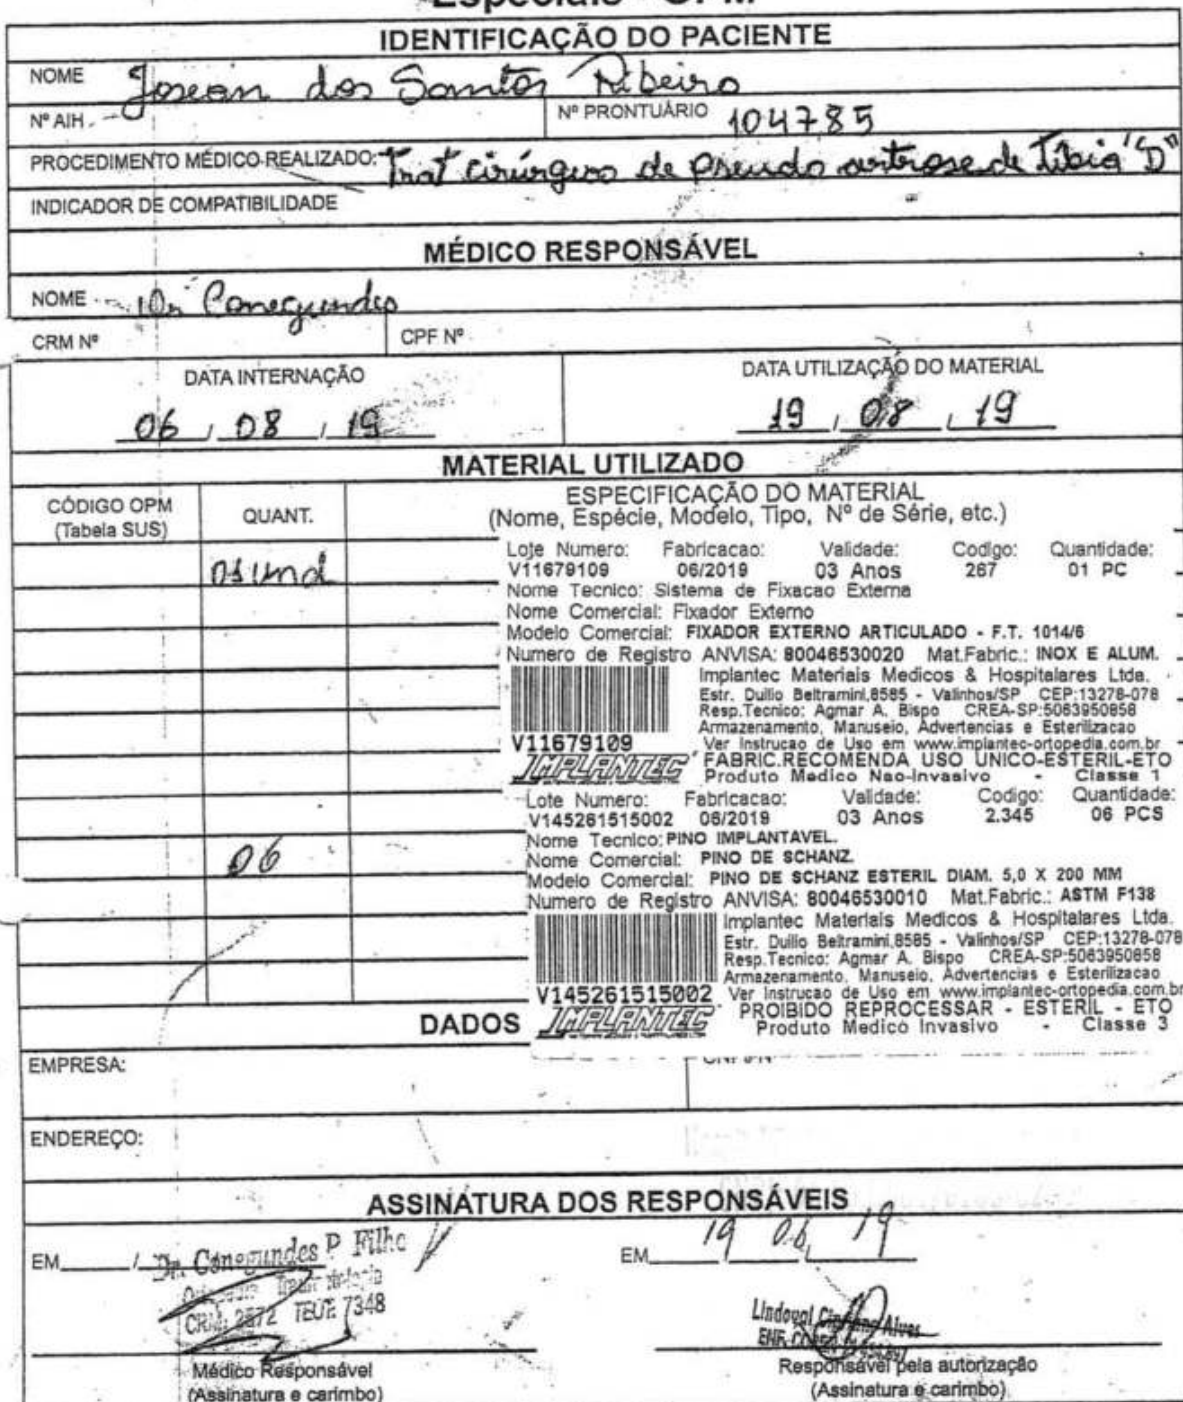 Especiais - OPM
IDENTIFICAÇÃO DO PACIENTE
NOME Josean dos Santos Ribeiro
Nº AIH Nº PRONTUÁRIO 104785
PROCEDIMENTO MÉDICO REALIZADO: Trat cirúrgico de Pseudo artrose de Tíbia "D"
INDICADOR DE COMPATIBILIDADE
MÉDICO RESPONSÁVEL
NOME Dr Conegundes
CRM Nº CPF Nº
DATA INTERNAÇÃO DATA UTILIZAÇÃO DO MATERIAL
06 / 08 / 19 19 / 08 / 19
MATERIAL UTILIZADO
CÓDIGO OPM (Tabela SUS) QUANT. ESPECIFICAÇÃO DO MATERIAL
(Nome, Espécie, Modelo, Tipo, Nº de Série, etc.)
01 und
Lote Numero: Fabricacao: Validade: Codigo: Quantidade:
V11679109 06/2019 03 Anos 267 01 PC
Nome Tecnico: Sistema de Fixacao Externa
Nome Comercial: Fixador Externo
Modelo Comercial: FIXADOR EXTERNO ARTICULADO - F.T. 1014/6
Numero de Registro ANVISA: 80046530020 Mat.Fabric.: INOX E ALUM.
Implantec Materiais Medicos & Hospitalares Ltda.
Estr. Duilio Beltramini,8585 - Valinhos/SP CEP:13278-078
Resp.Tecnico: Agmar A. Bispo CREA-SP:5063950858
Armazenamento, Manuseio, Advertencias e Esterilizacao
V11679109 Ver Instrucao de Uso em www.implantec-ortopedia.com.br
IMPLANTEC FABRIC.RECOMENDA USO UNICO-ESTERIL-ETO
Produto Medico Nao-Invasivo - Classe 1
Lote Numero: Fabricacao: Validade: Codigo: Quantidade:
V145261515002 06/2019 03 Anos 2.345 06 PCS
Nome Tecnico: PINO IMPLANTAVEL.
06
Nome Comercial: PINO DE SCHANZ.
Modelo Comercial: PINO DE SCHANZ ESTERIL DIAM. 5,0 X 200 MM
Numero de Registro ANVISA: 80046530010 Mat.Fabric.: ASTM F138
Implantec Materiais Medicos & Hospitalares Ltda.
Estr. Duilio Beltramini,8585 - Valinhos/SP CEP:13278-078
Resp.Tecnico: Agmar A. Bispo CREA-SP:5063950858
Armazenamento, Manuseio, Advertencias e Esterilizacao
V145261515002 Ver Instrucao de Uso em www.implantec-ortopedia.com.br
IMPLANTEC PROIBIDO REPROCESSAR - ESTERIL - ETO
Produto Medico Invasivo - Classe 3
DADOS
EMPRESA: CNPJ Nº
ENDEREÇO:
ASSINATURA DOS RESPONSÁVEIS
EM / Dr. Conegundes P. Filho EM 19 06 19
CRM: 2572 TEOT: 7348
Lindoval Alves
Médico Responsável Responsável pela autorização
(Assinatura e carimbo) (Assinatura e carimbo)